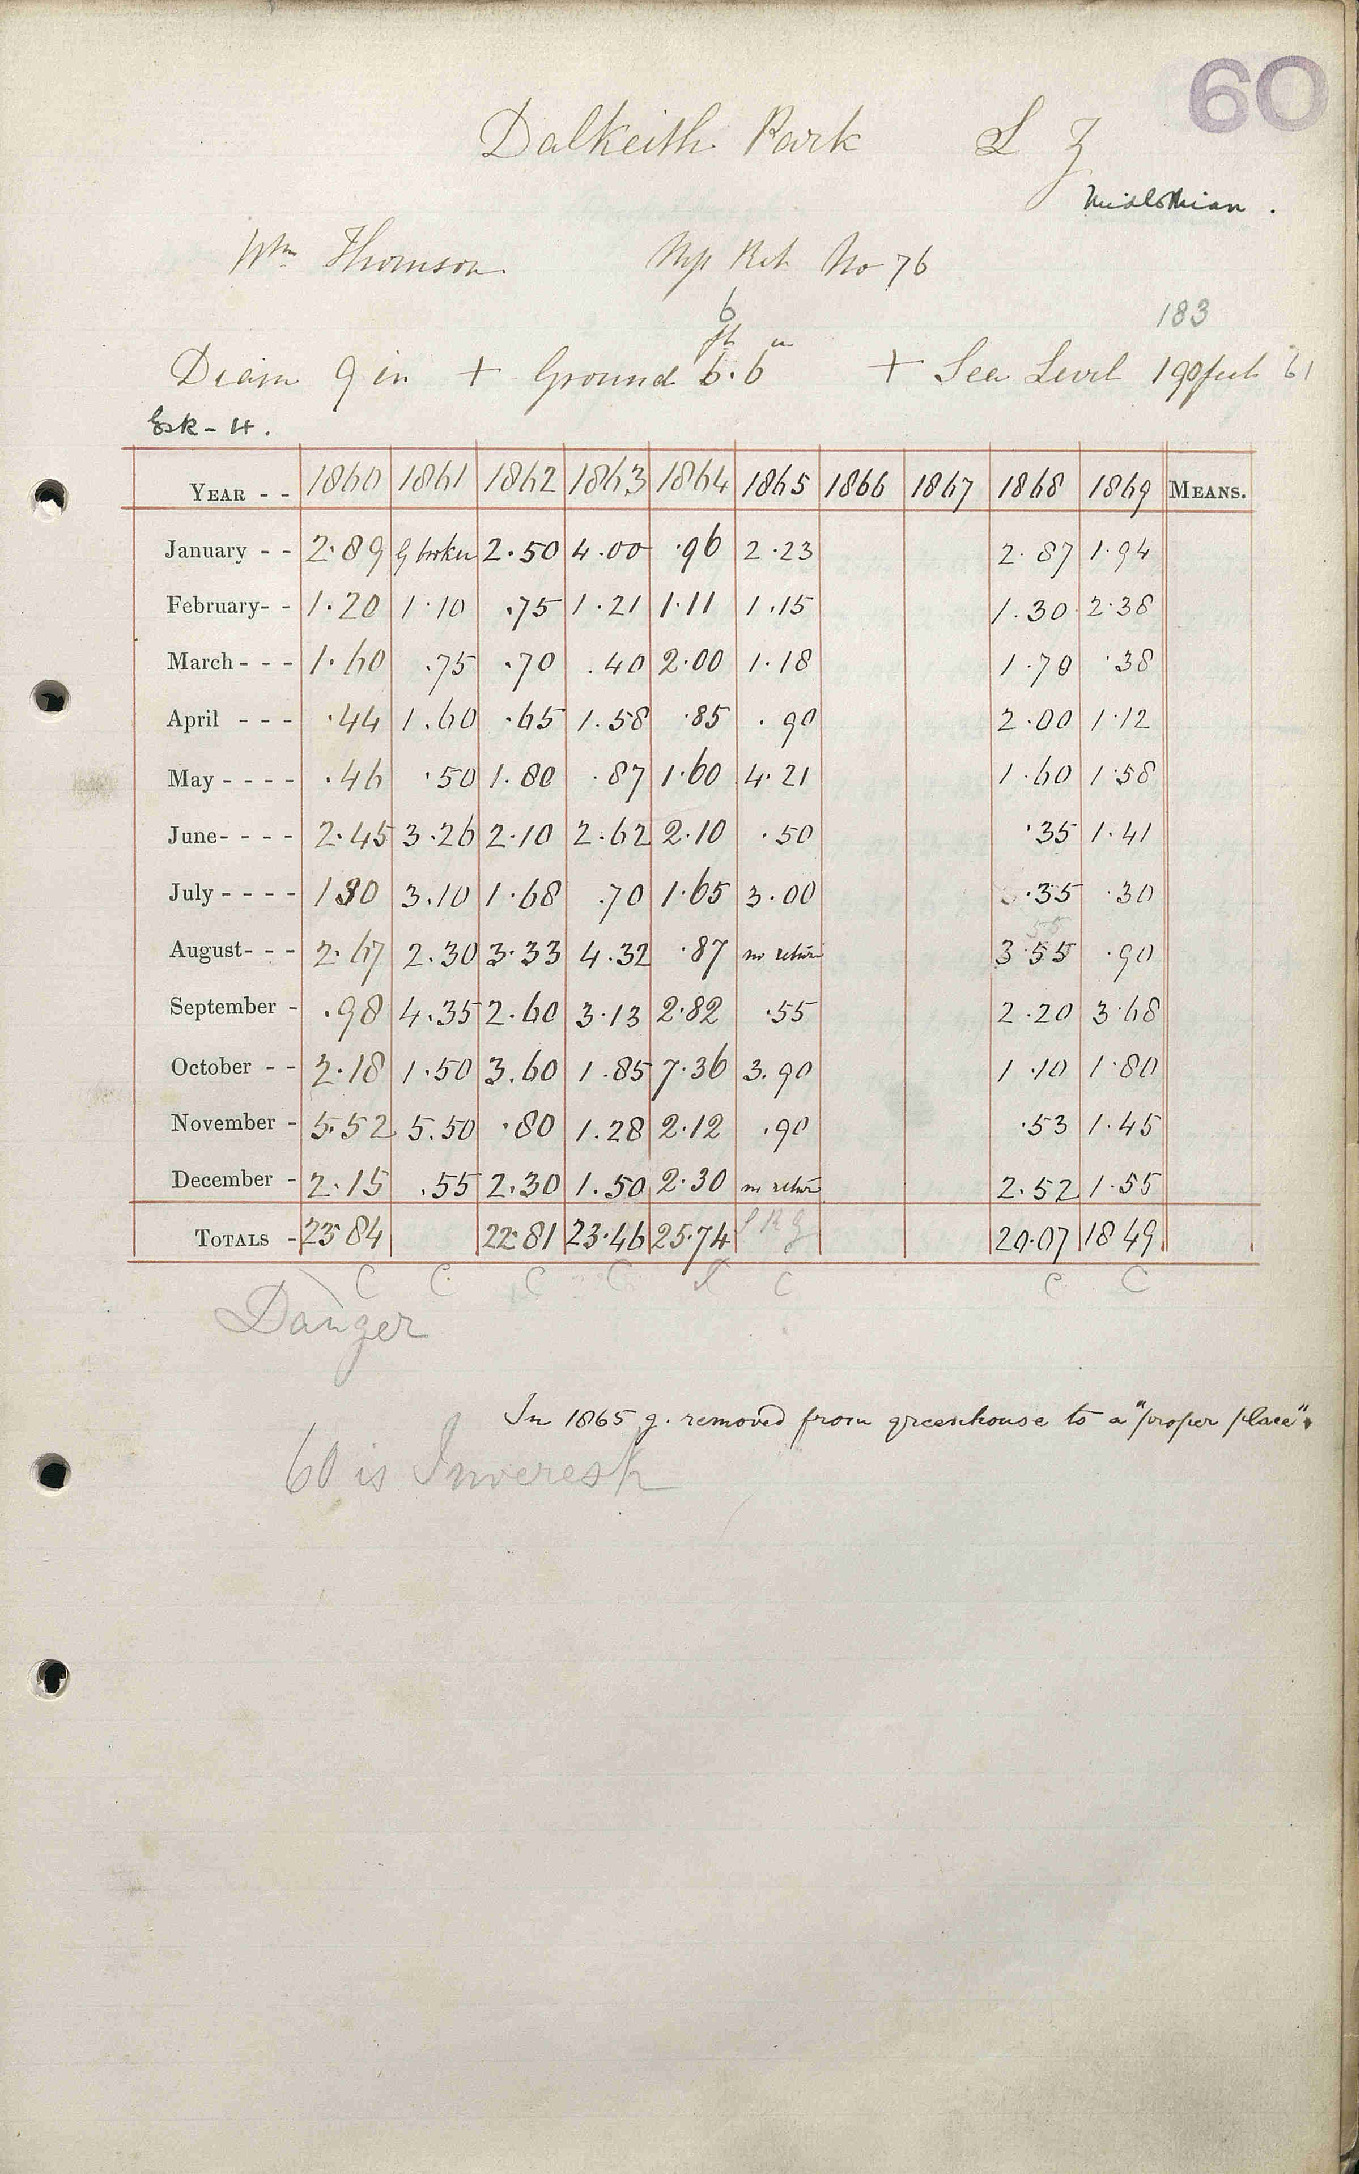 60
Dalkeith Park L Z
Midlothian.
Wm Thomson Nys Ret No 76
6
183
Diam 9 in + Ground 6 ft. 6 in + Sea Level 190 feet 61
Esk - 4.
YEAR - - 1860 1861 1862 1863 1864 1865 1866 1867 1868 1869 MEANS.
January - - 2.89 G broken 2.50 4.00 .96 2.23 2.87 1.94
February- - 1.20 1.10 .75 1.21 1.11 1.15 1.30 2.38
March - - - 1.60 .75 .70 .40 2.00 1.18 1.70 .38
April - - - .44 1.60 .65 1.58 .85 .90 2.00 1.12
May - - - - .46 .50 1.80 .87 1.60 4.21 1.60 1.58
June- - - - 2.45 3.26 2.10 2.62 2.10 .50 .35 1.41
July - - - - 1 30 3.10 1.68 .70 1.65 3.00 .35 .30
55
August- - - 2.67 2.30 3.33 4.32 .87 no return 3.55 .90
September - .98 4.35 2.60 3.13 2.82 .55 2.20 3.68
October - - 2.18 1.50 3.60 1.85 7.36 3.90 1.10 1.80
November - 5.52 5.50 .80 1.28 2.12 .90 .53 1.45
December - 2.15 .55 2.30 1.50 2.30 no return 2.52 1.55
TOTALS - 23 84 22.81 23.46 25.74 20.07 18 49
C C C C C C C
Danger
In 1865 g. removed from greenhouse to a "proper place".
60 is Inveresk